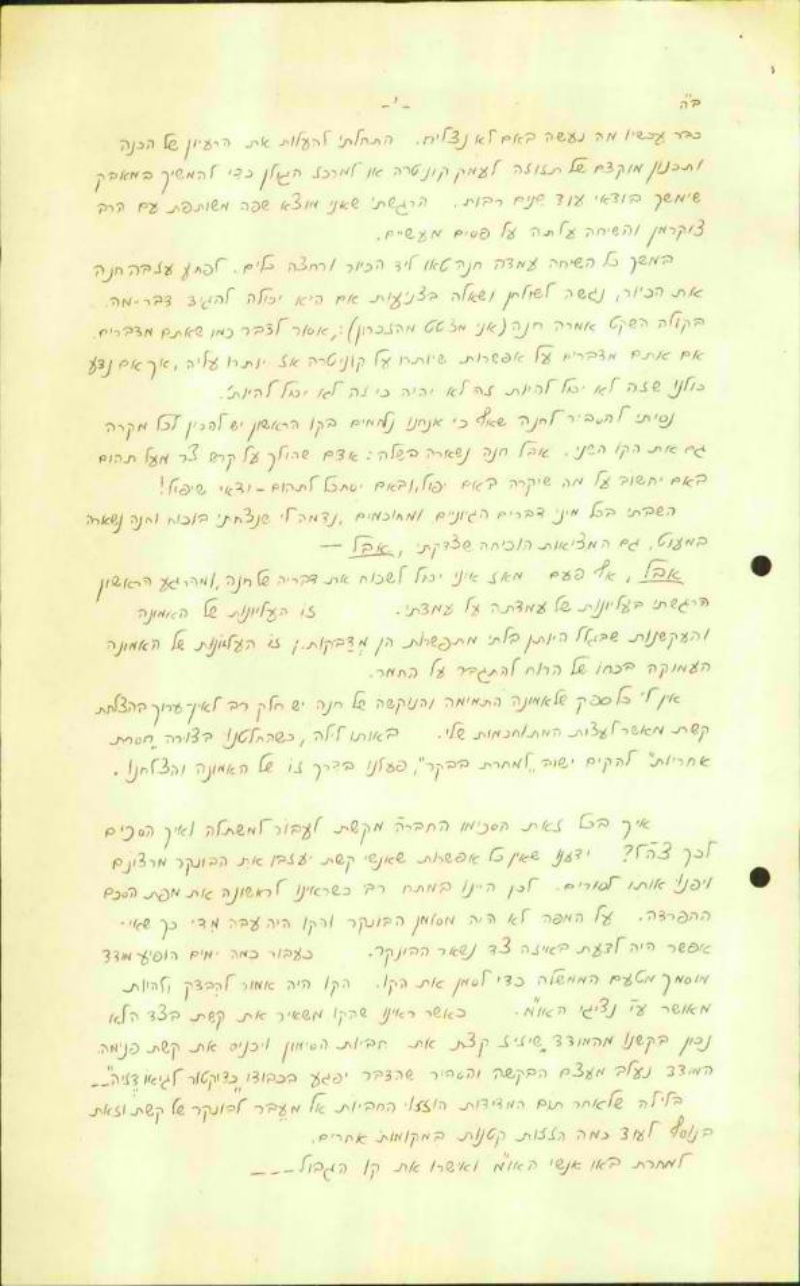 ב"ה
- י -
כבר עכשיו מה נעשה באם לא נצליח. התחלתי להעלות את הרעיון של הכנה
ותכנון מוקדם של תזוזה לעמק קוניטרה או למרכז הגולן כדי להמשיך במאבק
שימשך בודאי עוד שנים רבות. הרגשתי שאני מוצא שפה משותפת עם הרב
צוקרמן והשיחה עלתה על פסים מעשיים.
במשך כל השיחה עמדה חנה טאו ליד הכיור ורחצה כלים. לפתע עזבה חנה
את הכיור, נגשה לשולחן ושאלה בצניעות אם היא יכולה להגיד דבר-מה.
בקולה השקט אמרה חנה (אני מצטט מהזכרון): "אסור לדבר כמו שאתם מדברים.
אם אתם מדברים על אפשרות שיותרו על קוניטרה אז יותרו עליה, אך אם נדע
כולנו שזה לא יכול להיות זה לא יהיה כי זה לא יכול להיות".
נסיתי להסביר לחנה שאף כי אנחנו נלחמים בקו הראשון יש להכין לכל מקרה
גם את הקו השני. אבל חנה נשארה בשלה: אדם שהולך על קרש צר מעל תהום
באם יחשוב על מה שיקרה באם יפול, ובאם יסתכל לתהום - ודאי שיפול!
השבתי בכל מיני דברים הגיוניים ומחוכמים, נדמה לי שנצחתי בוכוח וחנה נשארה
במעוט, גם המציאות הוכיחה שצדקתי, אבל —
אבל, אף פעם מאז איני יכול לשכוח את דבריה של חנה, ומהרגע הראשון
הרגשתי בעליונות של עמדתה על עמדתי. זו העליונות של האמונה
והעקשנות שבגלל היותן בלתי מתפשרות הן מדבקות. זו העליונות של האמונה
העמוקה בכחו של הרוח להתגבר על החמר.
אין לי כל ספק שלאמונה התמימה והנוקשה של חנה יש חלק רב לאין-ערוך בהצלחת
קשת מאשר לעצות המתוחכמות שלי. באותו לילה, כשהחלטנו בצורה "חסרת
אחריות" להקים ישוב "למחרת בבקר", פעלנו בדרך זו של האמונה והצלחנו.
איך בכל זאת הסכימו החברה מקשת לעבור למשתלה ואיך הסכים
לכך צה"ל? ידענו שאין כל אפשרות שאנשי קשת יעזבו את הבונקר מרצונם
ויפנו אותו לסורים. לכן היינו במתח רב כשראינו לראשונה את מפת הסכם
ההפרדה. על המפה לא היה מסומן הבונקר והקו היה עבה מדי כך שאי-
אפשר היה לדעת באיזה צד נשאר הבונקר. כעבור כמה ימים הופיע מודד
מוסמך מטעם הממשלה כדי לסמן את הקו. הקו היה אמור להבדק ולהיות
מאושר ע"י נציגי האו"ם. כאשר ראינו שהקו משאיר את קשת בצד הלא
נכון בקשנו מהמודד שיזיז קצת את חביות הסימון ויכניס את קשת פנימה.
המודד נעלב מעצם הבקשה והסביר שהדבר יפגע בכבודו "כדוקטור לגיאודזיה" ---
בלילה שלאחר תום המדידות הוזזו החביות אל מעבר לבונקר של קשת וזאת
בנוסף לעוד כמה הזזות קטנות במקומות אחרים.
למחרת באו אנשי האו"ם ואישרו את קו הגבול ---